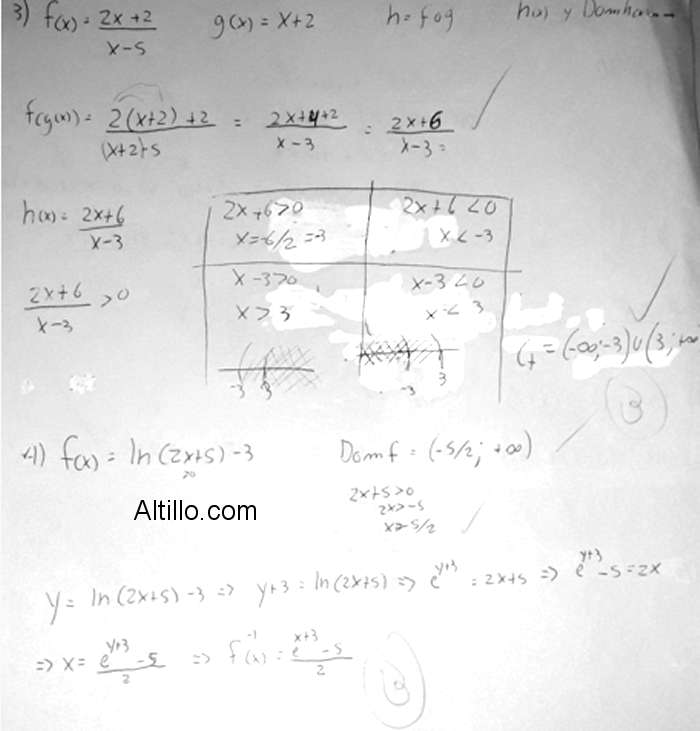 3) f(x) = 2x+2 / x-5   g(x) = x+2   h = f o g   h(x) y Dom
f(g(x)) = 2(x+2)+2 / (x+2)-5 = 2x+4+2 / x-3 = 2x+6 / x-3 =
h(x) = 2x+6 / x-3
2x+6>0   2x+6<0
x=-6/2=-3   x<-3
2x+6 / x-3 >0
x-3>0   x-3<0
x>3   x<3
-3 3   -3 3   C+ = (-∞;-3)∪(3;+∞
3
4) f(x) = ln(2x+5)-3   Domf = (-5/2; +∞)
>0
2x+5>0
2x>-5
x>-5/2
Altillo.com
y = ln(2x+5)-3 => y+3 = ln(2x+5) => e^y+3 = 2x+5 => e^y+3 -5=2x
=> x = e^y+3 -5 / 2 => f^-1(x) = e^x+3 -5 / 2
3